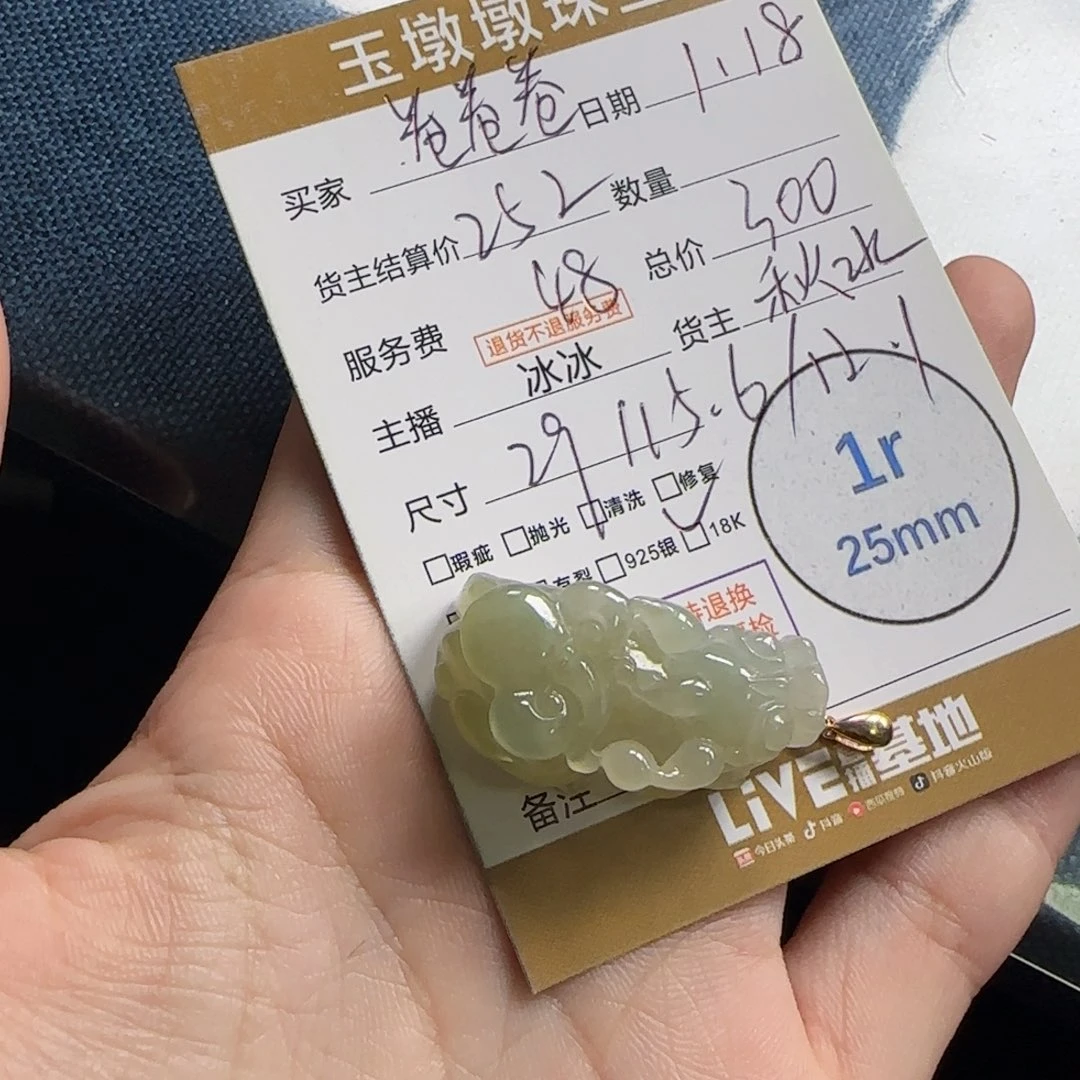 玉墩墩珠
买家 卷卷卷 日期 1.18
货主结算价 252 数量
服务费 48 总价 300
退货不退服务费
主播 冰冰 货主 秋水
尺寸 29/15.6/12.1
□瑕疵 □抛光 □清洗 □修复
有裂 □925银 □18K
1r
25mm
退换
检
备注
LiVE 基地
今日头条 抖音 西瓜视频 抖音火山版